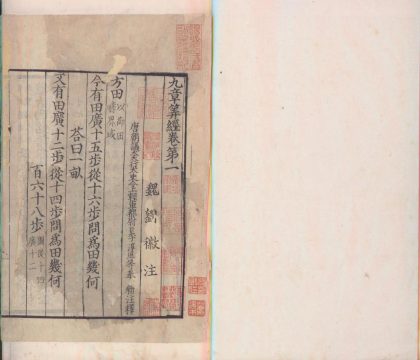 九章筭經卷第一
魏 劉 徽 注
唐朝議大夫行太史令上輕車都尉臣李淳風等奉 勑注釋
方田以御田疇界域
今有田廣十五步從十六步問為田幾何
荅曰一畝
又有田廣十二步從十四步問為田幾何
百六十八步